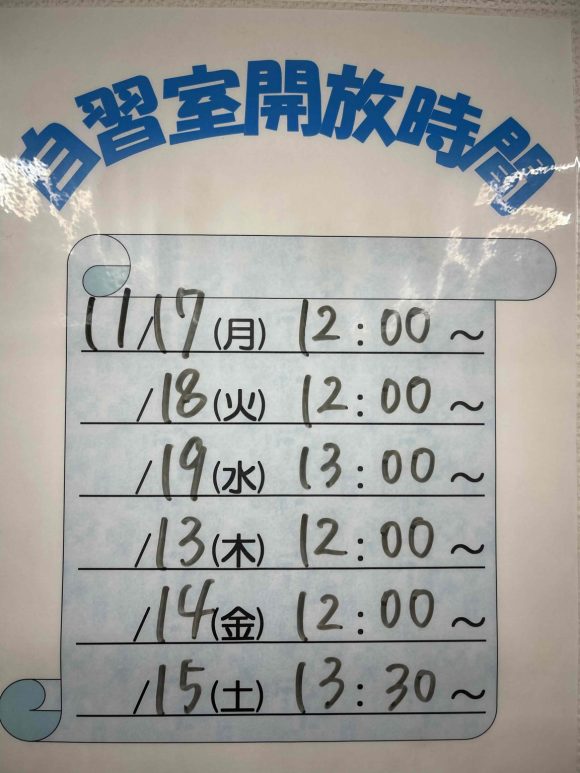 自習室開放時間
11/17(月) 12:00～
/18(火) 12:00～
/19(水) 13:00～
/13(木) 12:00～
/14(金) 12:00～
/15(土) 13:30～